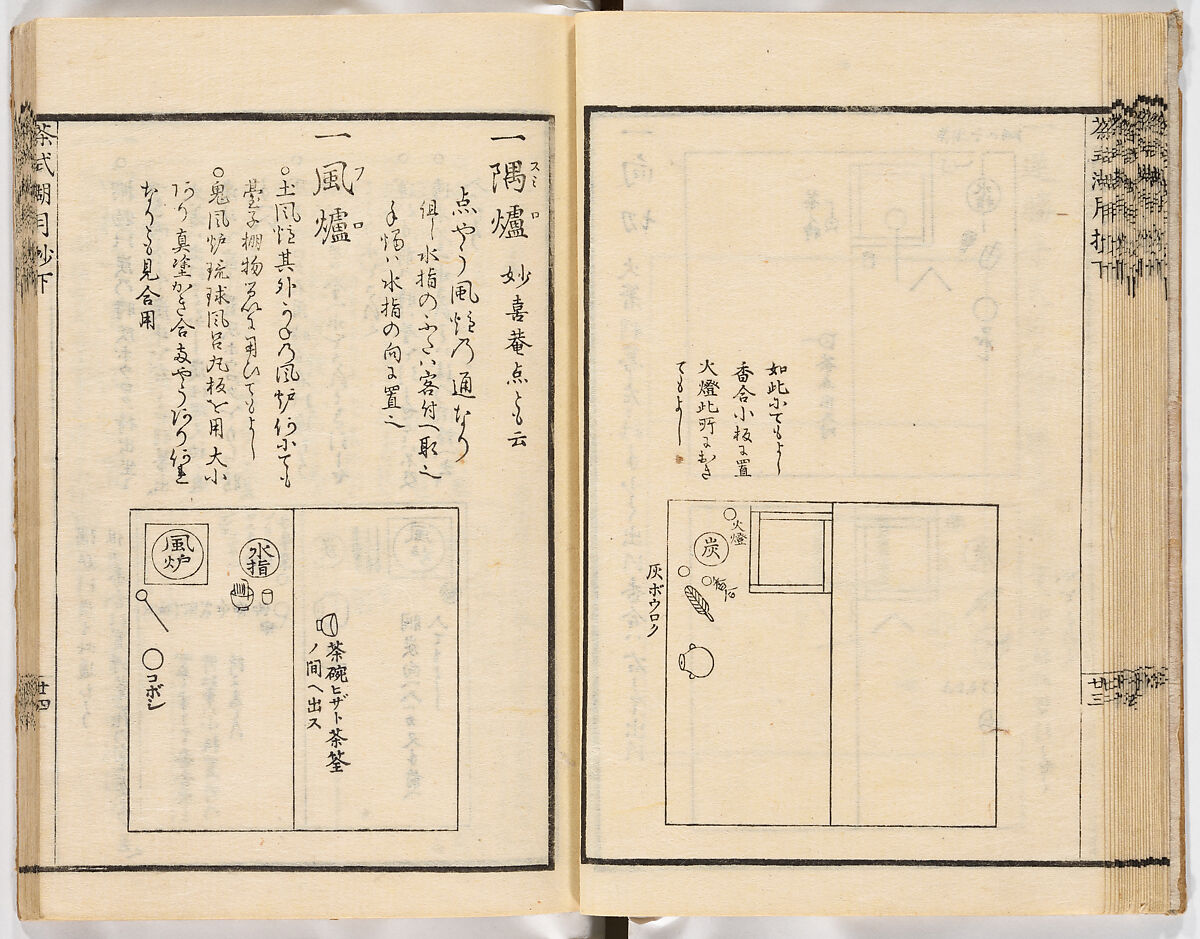 茶式湖月抄下
廿三
如此にてもよし
香合小板に置
火燈此所におき
てもよし
火燈
炭
香合
灰ボウロク
一隅爐 妙喜菴点とも云
スミロ
点やう風炉の通なり
但し水指のふたハ客付へ取也
手燭ハ水指の向に置也
一風爐
フロ
○土風炉其外かねの風炉何にても
臺子棚物に用ひてもよし
○鬼風炉琉球風呂丸板を用大小
あり真塗かき合
なりとも見合用
風炉
水指
コボシ
茶碗ヒザト茶筌
ノ間ヘ出ス
茶式湖月抄下
廿四